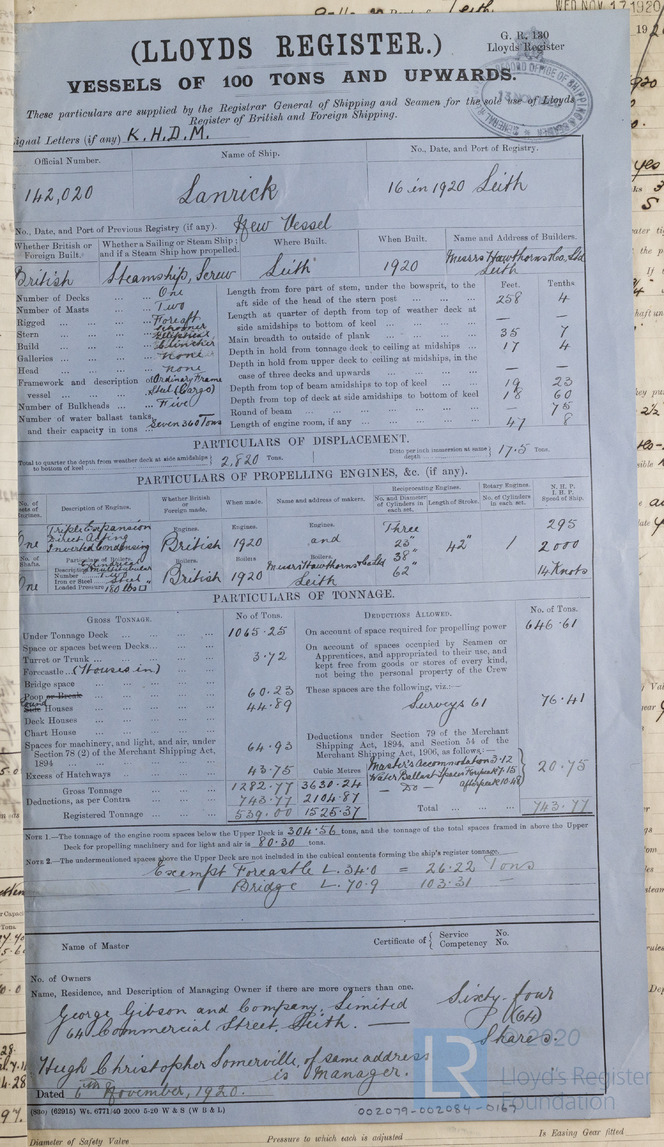 WED NOV 17 1920
Leith.
(LLOYDS REGISTER.)
G. R. 130
Lloyds Register
VESSELS OF 100 TONS AND UPWARDS.
These particulars are supplied by the Registrar General of Shipping and Seamen for the sole use of Lloyds
Register of British and Foreign Shipping.
Signal Letters (if any) K.H.D.M.
Official Number. Name of Ship. No., Date, and Port of Registry.
142,020 Lanrick 16 in 1920 Leith
No., Date, and Port of Previous Registry (if any). New Vessel
Whether British or Foreign Built. Whether a Sailing or Steam Ship; and if a Steam Ship how propelled. Where Built. When Built. Name and Address of Builders.
British Steamship, Screw Leith 1920 Messrs Hawthorns & Co. Ltd Leith
Number of Decks ... One
Number of Masts ... Two
Rigged ... Fore&aft Schooner
Stern ... Elliptical
Build ... Clincher
Galleries ... none
Head ... none
Framework and description of vessel ... Ordinary Frame Steel (Cargo)
Number of Bulkheads ... Five
Number of water ballast tanks, and their capacity in tons ... Seven 360 Tons
Feet. Tenths
Length from fore part of stem, under the bowsprit, to the aft side of the head of the stern post ... 258 4
Length at quarter of depth from top of weather deck at side amidships to bottom of keel ... — —
Main breadth to outside of plank ... 35 7
Depth in hold from tonnage deck to ceiling at midships ... 17 4
Depth in hold from upper deck to ceiling at midships, in the case of three decks and upwards ... —
Depth from top of beam amidships to top of keel ... 19 23
Depth from top of deck at side amidships to bottom of keel 18 60
Round of beam ... — 75
Length of engine room, if any ... 47 8
PARTICULARS OF DISPLACEMENT.
Total to quarter the depth from weather deck at side amidships to bottom of keel 2,820 Tons. Ditto per inch immersion at same depth 17.5 Tons.
PARTICULARS OF PROPELLING ENGINES, &c. (if any).
No. of sets of Engines. Description of Engines. Whether British or Foreign made. When made. Name and address of makers. Reciprocating Engines. No. and Diameter of Cylinders in each set. Length of Stroke. Rotary Engines. No. of Cylinders in each set. N. H. P. I. H. P. Speed of Ship.
One Triple Expansion Direct Acting Inverted Condensing Engines. British Engines. 1920 Engines. and Three 23" 38" 62" 42" / 295 2000 14 Knots
No. of Shafts. Particulars of Boilers. Boilers. Boilers. Boilers.
One Description Cylindrical Multitubular Number Two Iron or Steel Steel Loaded Pressure 180 lbs □" British 1920 Messrs Hawthorns & Co Ltd Leith
PARTICULARS OF TONNAGE.
GROSS TONNAGE. No of Tons.
Under Tonnage Deck ... 1065.25
Space or spaces between Decks...
Turret or Trunk ... 3.72
Forecastle... (Houses in)
Bridge space
Poop or Break 60.23
Round Side Houses 44.89
Deck Houses
Chart House
Spaces for machinery, and light, and air, under Section 78 (2) of the Merchant Shipping Act, 1894 ... 64.93
Excess of Hatchways ... 43.75 Cubic Metres
Gross Tonnage 1282.77 3630.24
Deductions, as per Contra ... 743.77 2104.87
Registered Tonnage 539.00 1525.37
DEDUCTIONS ALLOWED. No. of Tons.
On account of space required for propelling power 646.61
On account of spaces occupied by Seamen or Apprentices, and appropriated to their use, and kept free from goods or stores of every kind, not being the personal property of the Crew
These spaces are the following, viz.:—
Surveys 61 76.41
Deductions under Section 79 of the Merchant Shipping Act, 1894, and Section 54 of the Merchant Shipping Act, 1906, as follows:—
Master's Accommodation 3.12
Water Ballast Spaces Forepeak 7.15
— Do — afterpeak 10.48 20.75
Total ... 743.77
NOTE 1.—The tonnage of the engine room spaces below the Upper Deck is 304.56 tons, and the tonnage of the total spaces framed in above the Upper
Deck for propelling machinery and for light and air is 80.30 tons.
NOTE 2.—The undermentioned spaces above the Upper Deck are not included in the cubical contents forming the ship's register tonnage.
Exempt Forecastle L. 34.0 = 26.22 Tons
— Bridge L. 70.9 103.31 —
Name of Master Certificate of Service No. Competency No.
No. of Owners
Name, Residence, and Description of Managing Owner if there are more owners than one.
George Gibson and Company, Limited Sixty four
64 Commercial Street, Leith. — (64)
Shares.
Hugh Christopher Somerville, of same address
is Manager.
Dated 6th November, 1920.
(830) (62915) Wt. 6771/40 2000 5-20 W & S (W B & L)
002079-002084-0167
© 2020
LR Lloyd's Register
Foundation
Diameter of Safety Valve Pressure to which each is adjusted Is Easing Gear fitted